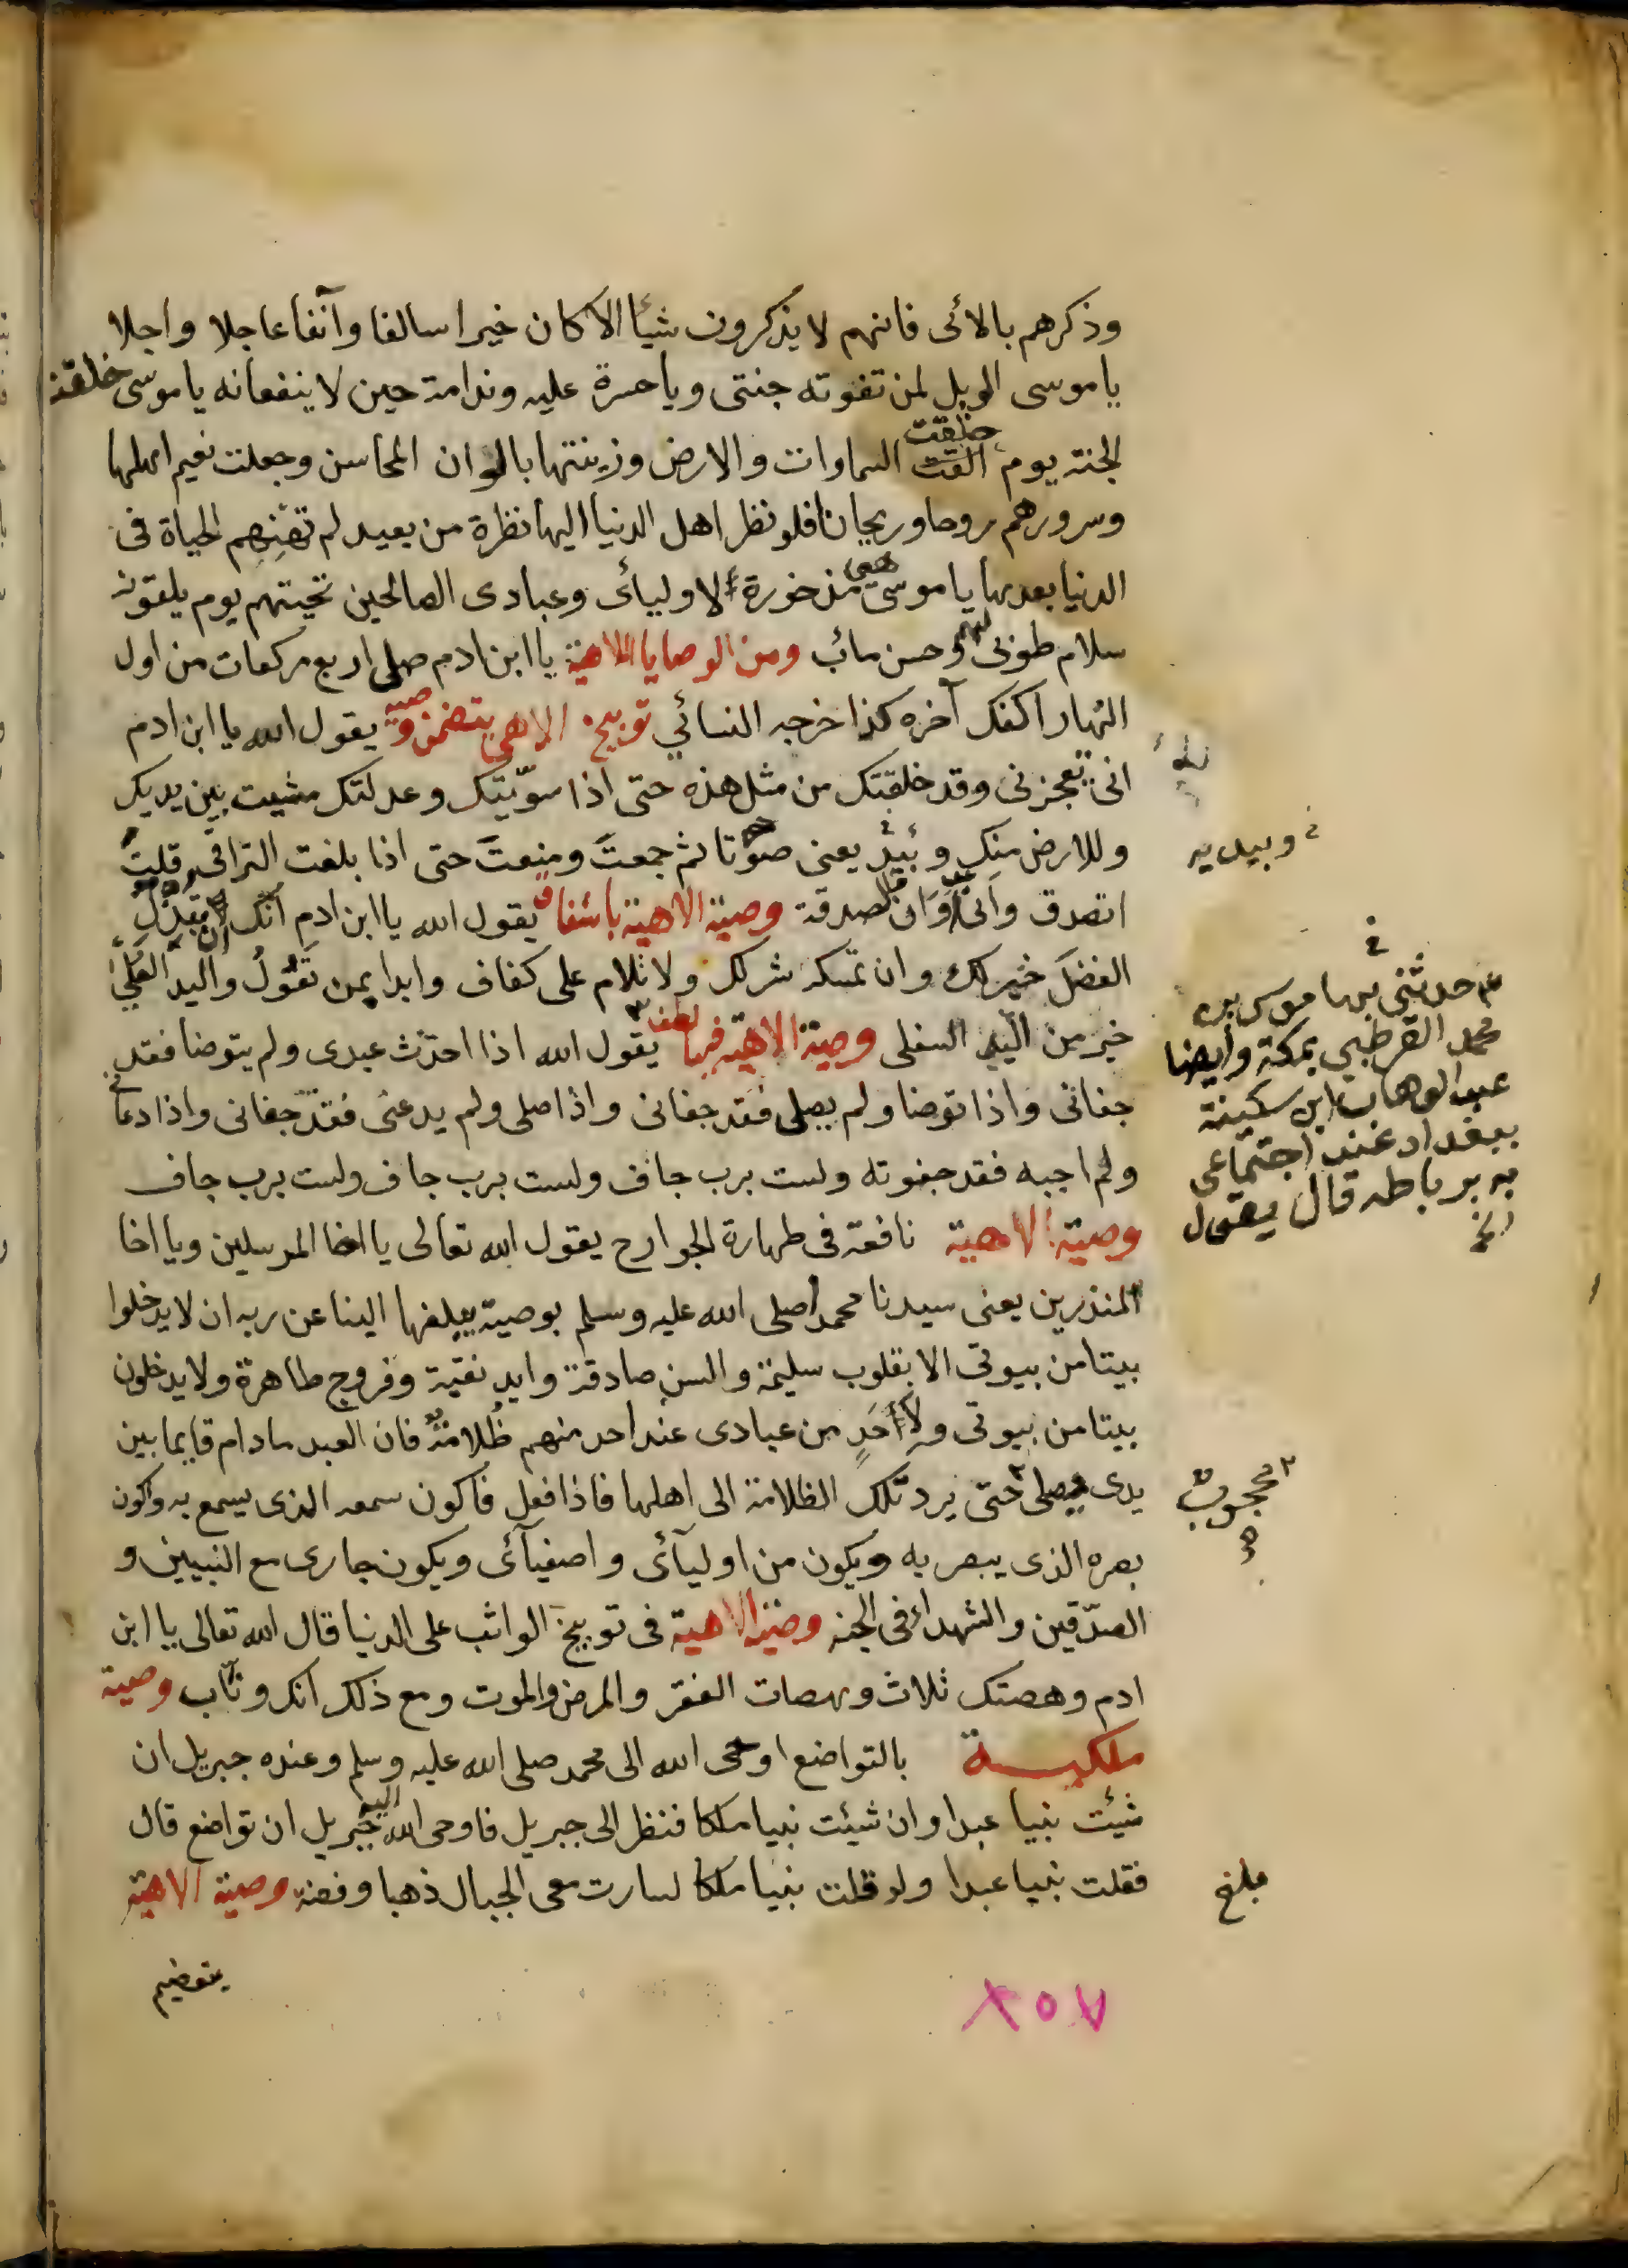 وذكرهم بالائى فانهم لا يذكرون شيأ الا كان خيرا سالفا وآنفا عاجلا واجلا
ياموسى الويل لمن تفوته جنتى وياحسرة عليه وندامة حين لا ينفعانه ياموسى خلقة
الجنة يوم القت خلقت السماوات والارض وزينتها بالوان المحاسن وجعلت نعيم اهلها
وسرورهم روحا وريحانا فلو نظر اهل الدنيا اليها نظرة من بعيد لم تهنهم الحياة فى
الدنيا بعدها ياموسى هى مذخورة لاوليائ وعبادى الصالحين تحيتهم يوم يلقون
سلام طوبى لهم وحسن مائب ومن الوصايا اللاهية ياابن ادم صلى اربع ركعات من اول
النهار اكفك آخره كذا خرجه النسائي توبيخ الاهى يتضمن وصيه يقول الله ياابن ادم
انى تعجزنى وقد خلقتك من مثل هذه حتى اذا سوّيتك وعدلتك مشيت بين يديك
وللارض منك وئيد يعنى صوتا ثم جمعت ومنعت حتى اذا بلغت التراقى قلت
اتصدق وانى اوان الصدقة وصية الاهية باشفاق يقول الله ياابن ادم انك ان تبذل
الفضل خير لك وان تمسكه شر لك ولا تلام على كفاف وابدا بمن تعول واليد العليا
خير من اليد السفلى وصية الاهية فيها لطف يقول الله اذا احدث عبدى ولم يتوضا فقد
جفانى واذا توضا ولم يصلى فقد جفانى واذا صلى ولم يدعنى فقد جفانى واذا دعانى
ولم اجبه فقد جفوته ولست برب جاف ولست برب جاف
وصية الاهية نافعة فى طهارة الجوارح يقول الله تعالى يااخا المرسلين ويااخا
المنذرين يعنى سيدنا محمدا صلى الله عليه وسلم بوصية يبلغها الينا عن ربه ان لا يدخلوا
بيتا من بيوتى الا بقلوب سليمة والسن صادقة وايد نقية وفروج طاهرة ولا يدخلون
بيتا من بيوتى ولأحد من عبادى عند احد منهم ظلامة فان العبد مادام قايما بين
يدى يصلى حتى يرد تلك الظلامة الى اهلها فاذا فعل فاكون سمعه الذى يسمع به واكون
بصره الذى يبصر به ويكون من اوليآئى واصفيآئى ويكون جارى مع النبيين و
الصدّقين والشهداء فى الجنة وصية الاهية فى توبيخ الواثب على الدنيا قال الله تعالى ياابن
ادم وهصتك ثلاث وهصات الفقر والمرض والموت ومع ذلك انك وثاب وصية
ملكيــة بالتواضع اوحى الله الى محمد صلى الله عليه وسلم وعنده جبريل ان
شئت نبيا عبدا وان شئت نبيا ملكا فنظر الى جبريل فاوحى الله اليه جبريل ان تواضع قال
فقلت نبيا عبدا ولو قلت نبيا ملكا لسارت معى الجبال ذهبا وفضة وصية الاهية
وبيديه
حدثنى بها موسى بن
محمد القرطبي بمكة وايضا
عبد الوهاب ابن سكينة
ببغداد عند اجتماعى
به برباطه قال يقول
الخ
محجوب
مبلغ
٢٥٧